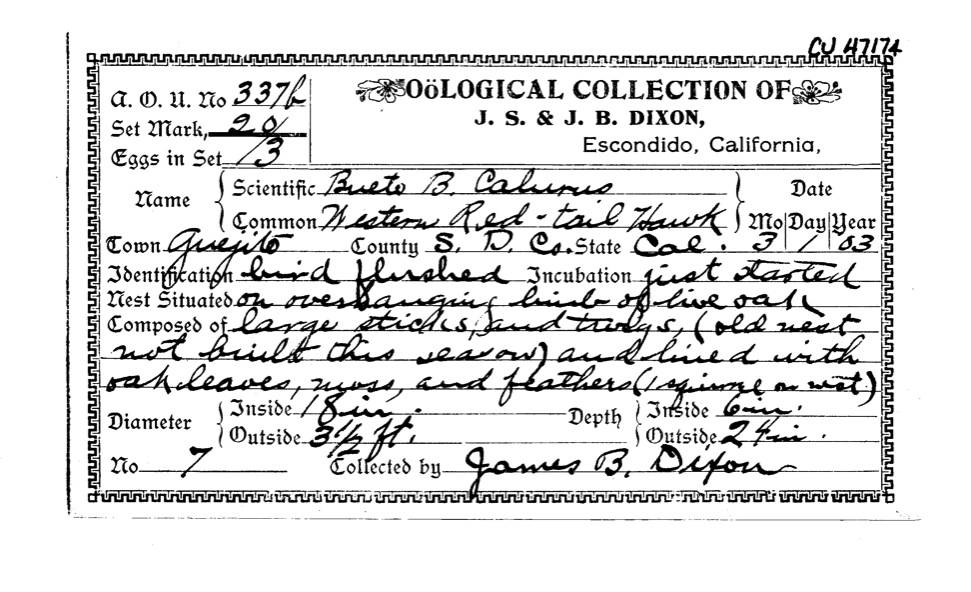 CU 47174
A. O. U. No 337b
OöLOGICAL COLLECTION OF
J. S. & J. B. DIXON,
Escondido, California,
Set Mark, 20/
Eggs in Set /3
Name Scientific Bueto B. Calurus Date
Common Western Red-tail Hawk Mo Day Year
Town Guejito County S. D. Co. State Cal. 3 1 03
Identification bird flushed Incubation just started
Nest Situated on overhanging limb of live oak
Composed of large sticks, and twigs, (old nest
not built this season) and lined with
oak leaves, moss, and feathers (1 on nest)
Diameter Inside 18 in. Depth Inside 6 in.
Outside 3 1/2 ft. Outside 24 in.
No 7 Collected by James B. Dixon